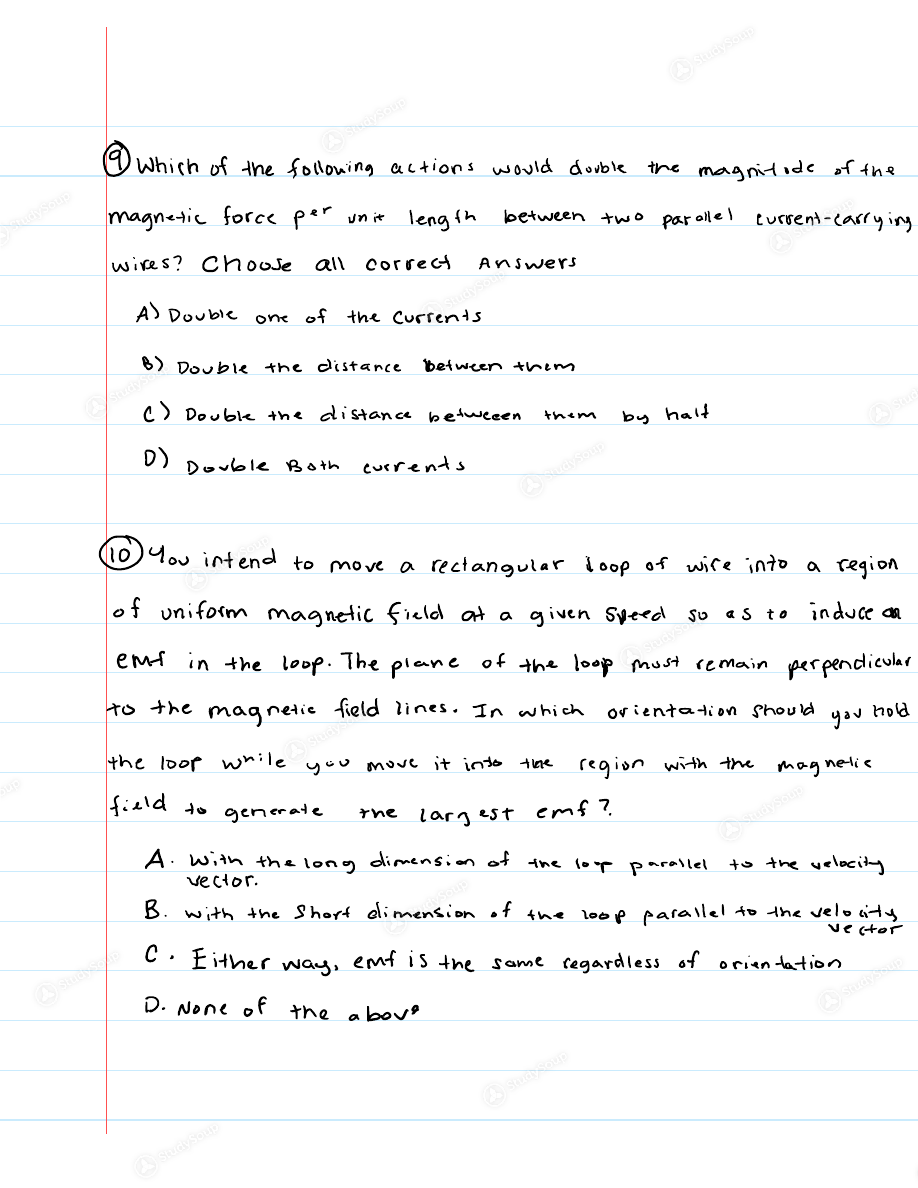 9 Which of the following actions would double the magnitude of the
magnetic force per unit length between two parallel current-carrying
wires? Choose all correct Answers
A) Double one of the currents
B) Double the distance between them
C) Double the distance betweeen them by half
D) Double Both currents
10 You intend to move a rectangular loop of wire into a region
of uniform magnetic field at a given speed so as to induce an
emf in the loop. The plane of the loop must remain perpendicular
to the magnetic field lines. In which orientation should you hold
the loop while you move it into the region with the magnetic
field to generate the largest emf?
A. With the long dimension of the loop parallel to the velocity
vector.
B. with the short dimension of the loop parallel to the velocity
vector
C. Either way, emf is the same regardless of orientation
D. None of the above
StudySoup